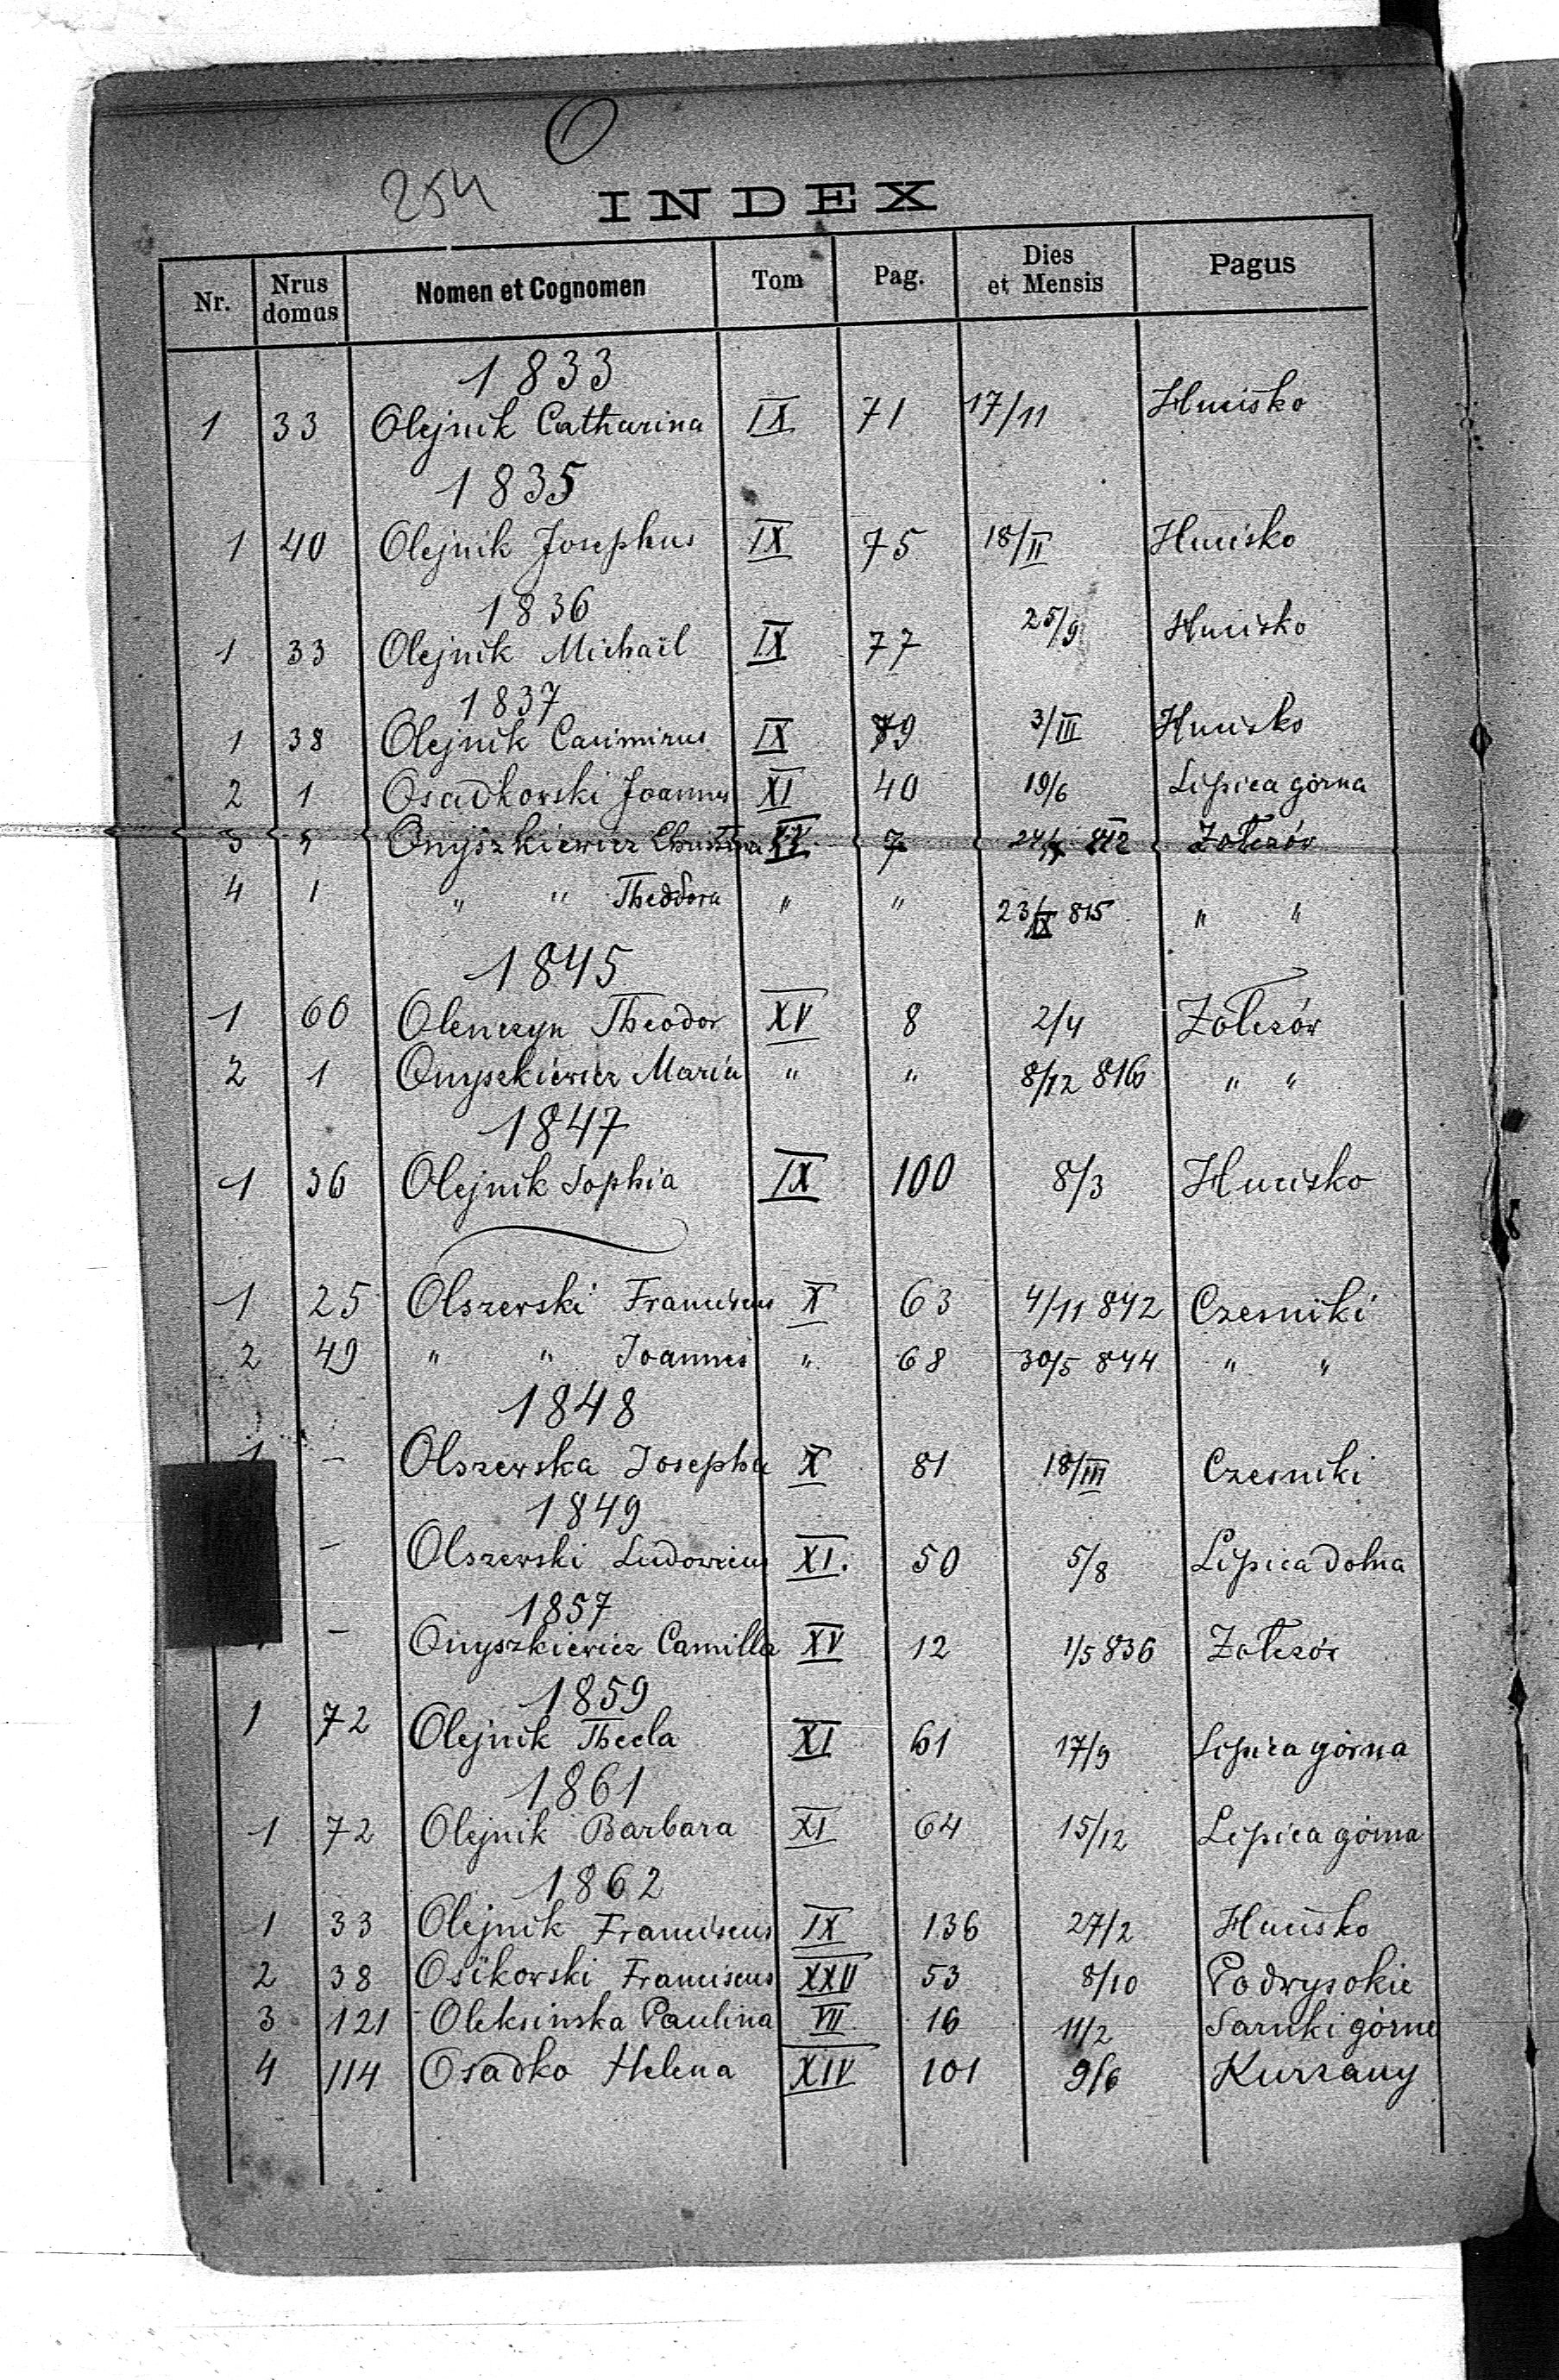 O
254
INDEX
Nr. Nrus domus Nomen et Cognomen Tom Pag. Dies et Mensis Pagus
1833
1 33 Olejnik Catharina IX 71 17/11 Hucisko
1835
1 40 Olejnik Josephus IX 75 18/II Hucisko
1836
1 33 Olejnik Michaël IX 77 25/9 Hucisko
1837
1 38 Olejnik Casimirus IX 79 3/III Hucisko
2 1 Osadkowski Joannes XI 40 19/6 Lipica górna
3 Onyszkiewicz Christina XV 7 Żołczów
4 1 " " Theodora " " 23/IX 815 " "
1845
1 60 Olenczyn Theodor XV 8 2/4 Żołczów
2 1 Onyszkiewicz Maria " " 8/12 816 " "
1847
1 36 Olejnik Sophia IX 100 8/3 Hucisko
1 25 Olszewski Franciscus X 63 4/11 842 Czesniki
2 49 " " Joannes " 68 30/5 844 " "
1848
1 – Olszewska Josepha X 81 18/III Czesniki
1849
– Olszewski Ludovicus XI. 50 5/8 Lipica dolna
1857
– Onyszkiewicz Camilla XV 12 1/5 836 Żołczów
1859
1 72 Olejnik Thecla XI 61 17/9 Lipica górna
1861
1 72 Olejnik Barbara XI 64 15/12 Lipica górna
1862
1 33 Olejnik Franciscus IX 136 27/2 Hucisko
2 38 Osikowski Franciscus XXV 53 8/10 Podwysokie
3 121 Oleksinska Paulina VII 16 11/2 Sarnki górne
4 114 Osadko Helena XIV 101 9/6 Kurzany